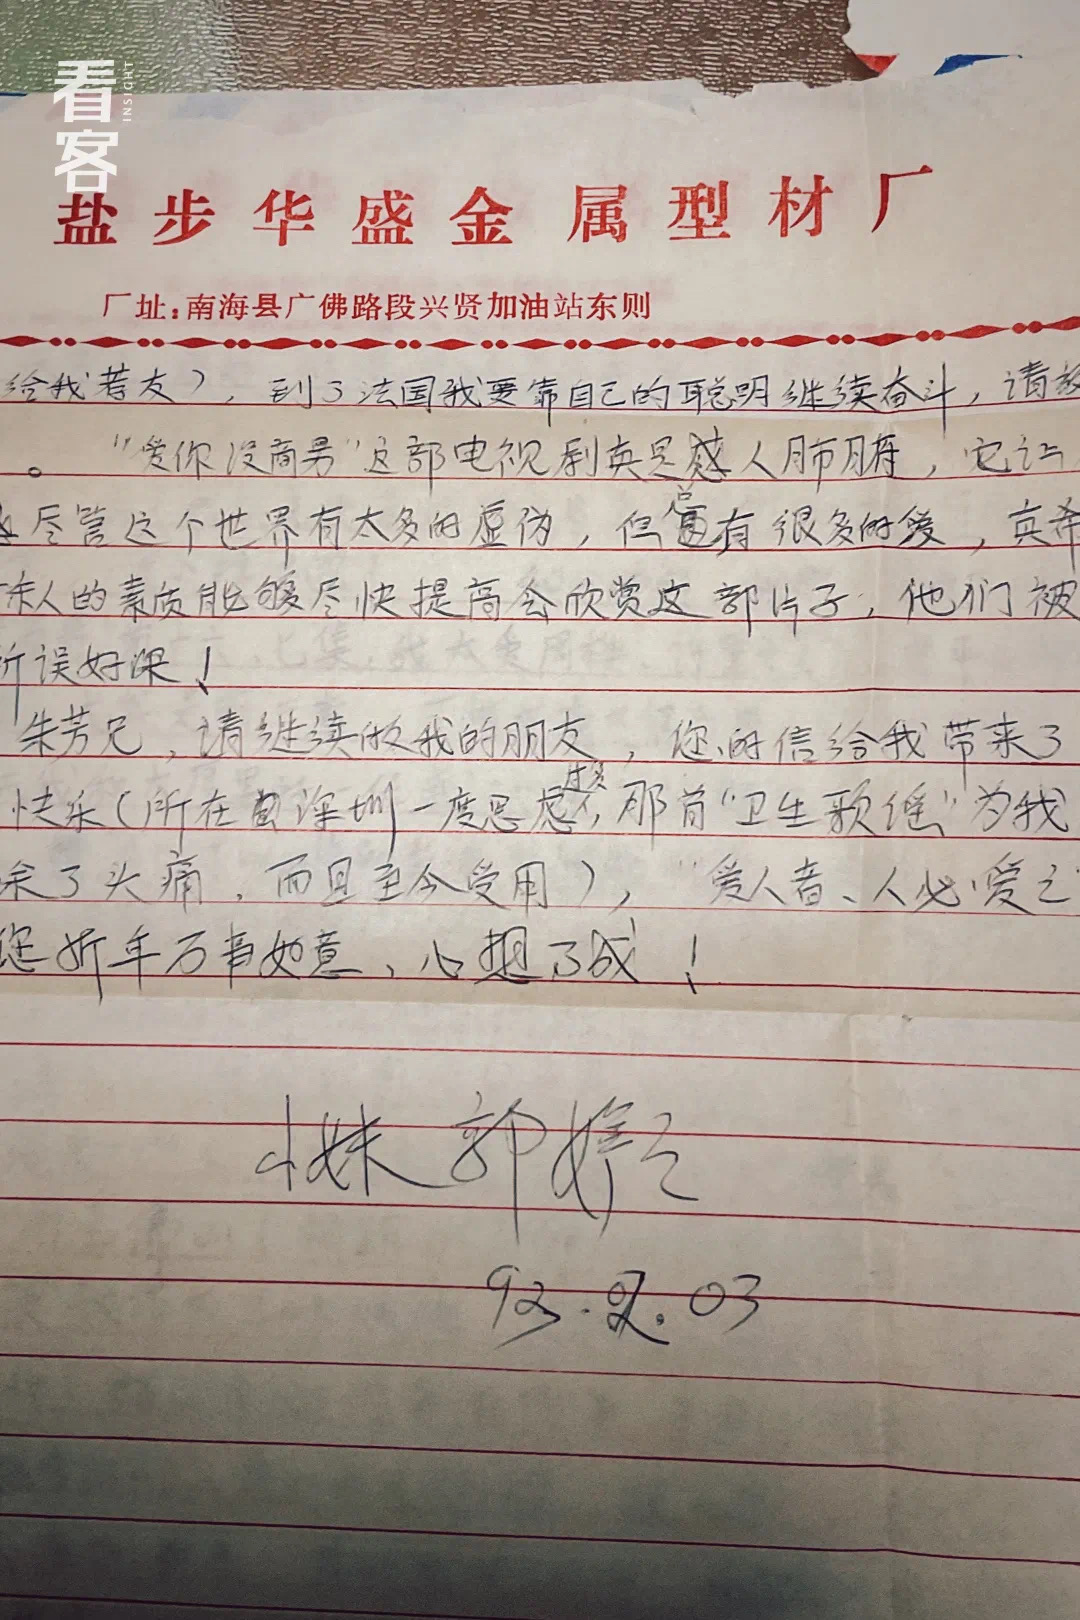 看客
INSIGHT
盐步华盛金属型材厂
厂址:南海县广佛路段兴贤加油站东则
给我若友),到了法国我要靠自己的聪明继续奋斗,请放
。“爱你没商另”这部电视剧真是感人肺腑,它让
尽管这个世界有太多的虚伪,但总有很多的爱,真希
人的素质能够尽快提高会欣赏这部片子,他们被
所误好深!
朱芳兄,请继续做我的朋友,您的信给我带来了
快乐(所在深圳一度思虑过多,那首“卫生歌谣”为我
除了头痛,而且至今受用),“爱人者、人必爱之”
您新年万事如意,心想了成!
小妹 郭婷之